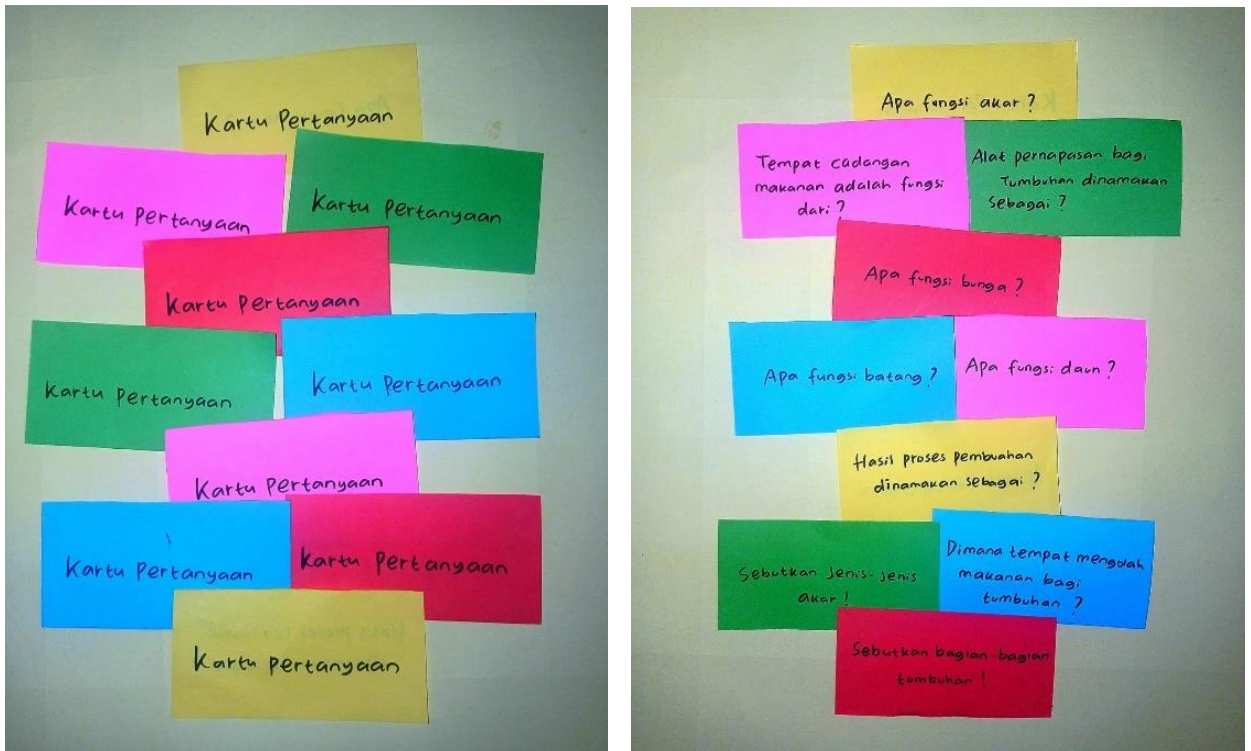 Kartu Pertanyaan
Kartu Pertanyaan
Kartu Pertanyaan
Kartu Pertanyaan
Kartu Pertanyaan
Kartu Pertanyaan
Kartu Pertanyaan
Kartu Pertanyaan
Kartu Pertanyaan
Kartu Pertanyaan
Apa fungsi akar ?
Tempat cadangan
makanan adalah fungsi
dari ?
Alat pernapasan bagi
Tumbuhan dinamakan
Sebagai ?
Apa fungsi bunga ?
Apa fungsi batang ?
Apa fungsi daun ?
Hasil proses pembuahan
dinamakan sebagai ?
Sebutkan Jenis-jenis
akar !
Dimana tempat mengolah
makanan bagi
tumbuhan ?
Sebutkan bagian-bagian
tumbuhan !